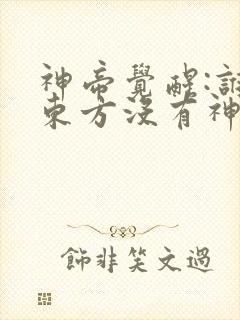 神帝覺醒:誰
東方沒有神
飾非笑文過